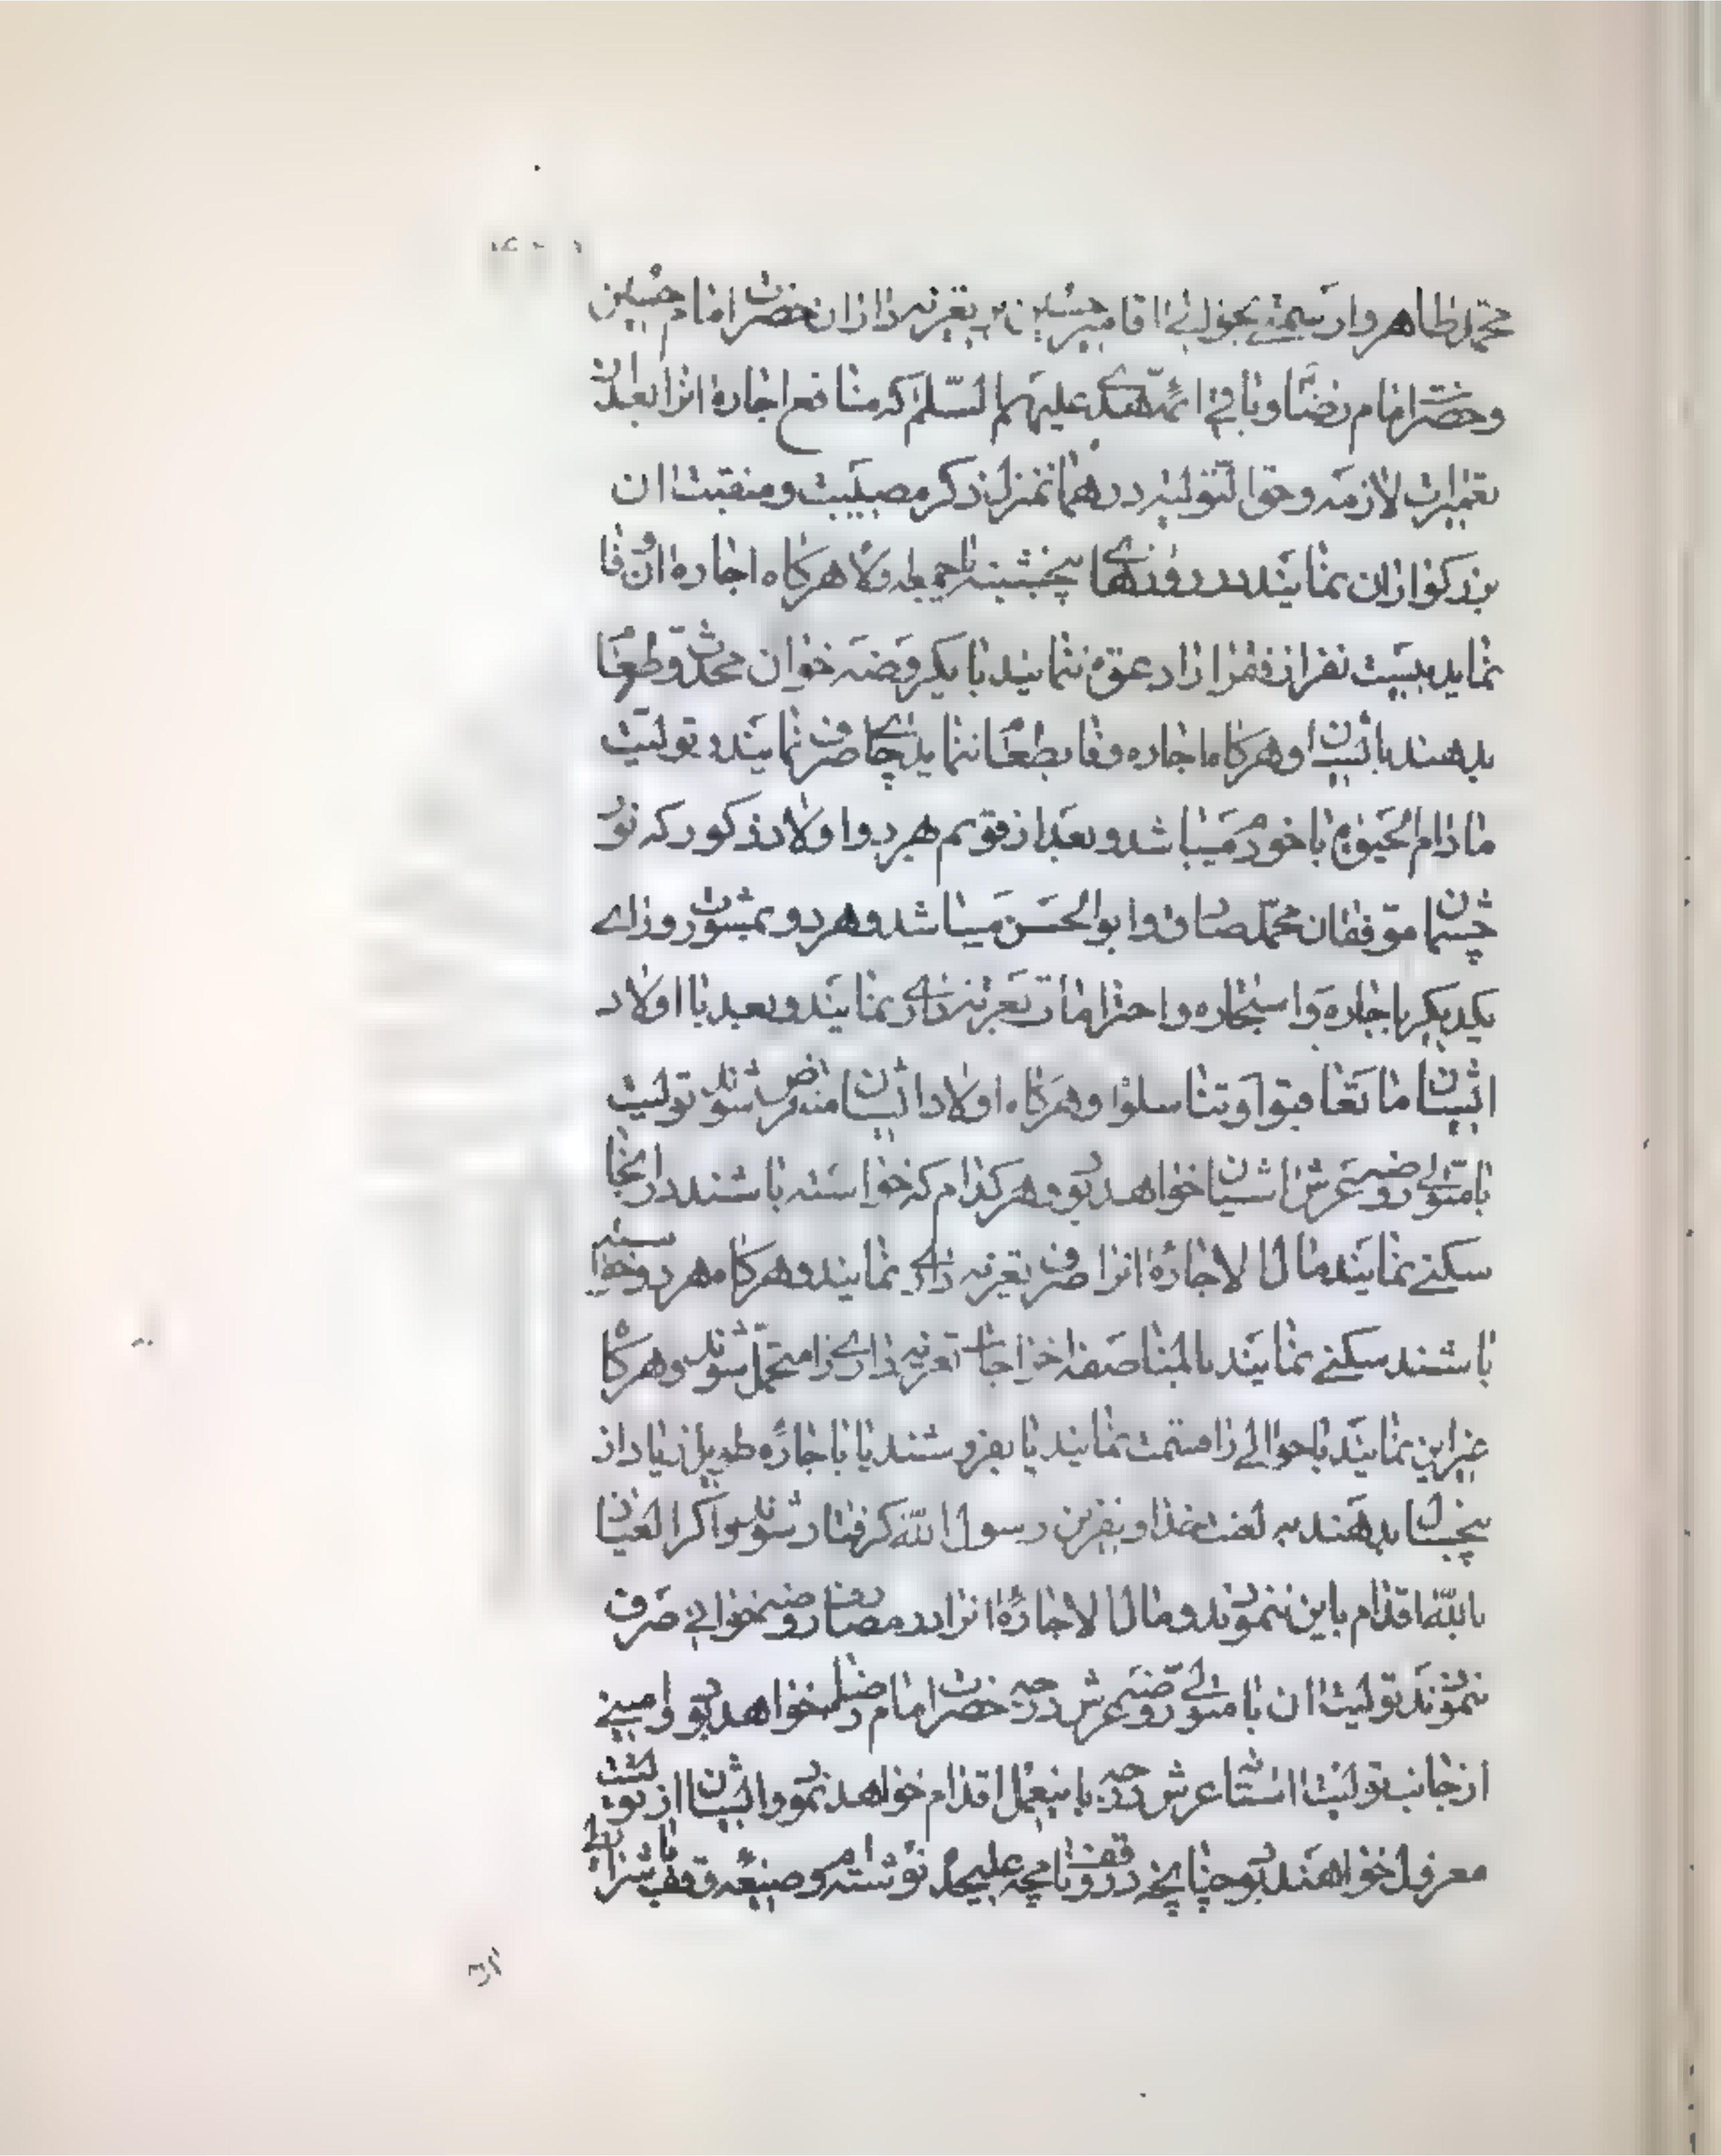 محمد طاهر و از سمتی بحوالی اقا میر حسین بتعزیه داران حضرت امام حسین
و حضرت امام رضا و باقی ائمه هدی علیهم السلم که منافع اجاره انرا بعد از
تعمیرات لازمه و حق التولیه در همان منزل ذکر مصیبت و منقبت ان
بزرکواران نمایند در روزهای پنجشبنه یا جمعه و الا هرکاه اجاره ان وفا
نماید بیست نفر از فقرا نمایند با یک روضه خوان محمد و طعام
بدهند بایشان و هرکاه اجاره وفا بطعام ننماید چای صرف نمایند و تولیت
مادام الحیوة با خودم میباشد و بعد از فوتم هر دو اولاد ذکور که نور
چشمان موفقان محمد صادق و ابوالحسن میباشد و هر دو بمشورت و رای
یکدیکر باجاره و استیجاره و احترامات تعزیه داری نمایند و بعد با اولاد
ایشان ما تعاقبوا و تناسلوا و هرکاه اولاد ایشان منقرض شوند تولیت
با متولی روضه عرش اشیان خواهد بود و هر کدام که خواسته باشند در اینجا
سکنی نمایند مال الاجاره انرا صرف تعزیه داری نمایند و هرکاه هر دو خواسته
باشند سکنی نمایند بالمناصفه اخراجات تعزیه داری را متحمل شوند و هرکاه
غیر این نمایند یا حوالی را قسمت نمایند یا بفروشند یا باجاره طویل زیاد از
پنجسال بدهند به لعنت خدا و نفرین رسول الله کرفتار شوند و اکر العیاذ
بالله اقدام باین نمودند و مال الاجاره انرا در مصارف روضه خوانی صرف
ننمودند تولیت ان با متولی روضه عرش درجه حضرت امام رضا خواهد بود و امینی
از جانب تولیت استانه عرش درجه باینعمل اقدام خواهد نمود و ایشان از تولیت
معزول خواهند بود چنانچه در وقفنامچه علیحده نوشته‌ام و صیغه وقف با شرایط